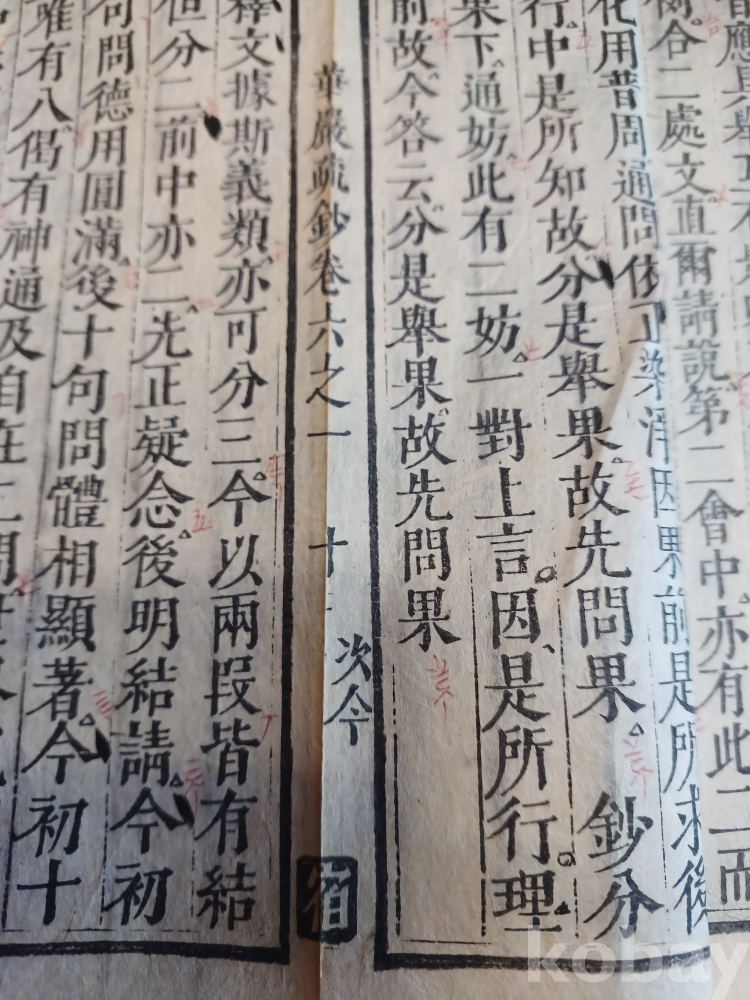 應具舉
合二處文。直爾請說。第二會中。亦有此二而
化用普周。通問依正染淨因果。前是所求。後
行。中是所知。故分是舉果。故先問果。　鈔分
果下。通妨。此有二妨。一對上言。因是所行。理
前。故今答云。分是舉果。故先問果
華嚴疏鈔卷六之一　十　次今　宿
釋文。據斯義類。亦可分三。今以兩段皆有結
但分二。前中亦二。先正疑念。後明結請。今初
句問德用圓滿。後十句問體相顯著。今初十
唯有八。偈有神通及自在二問
kobay